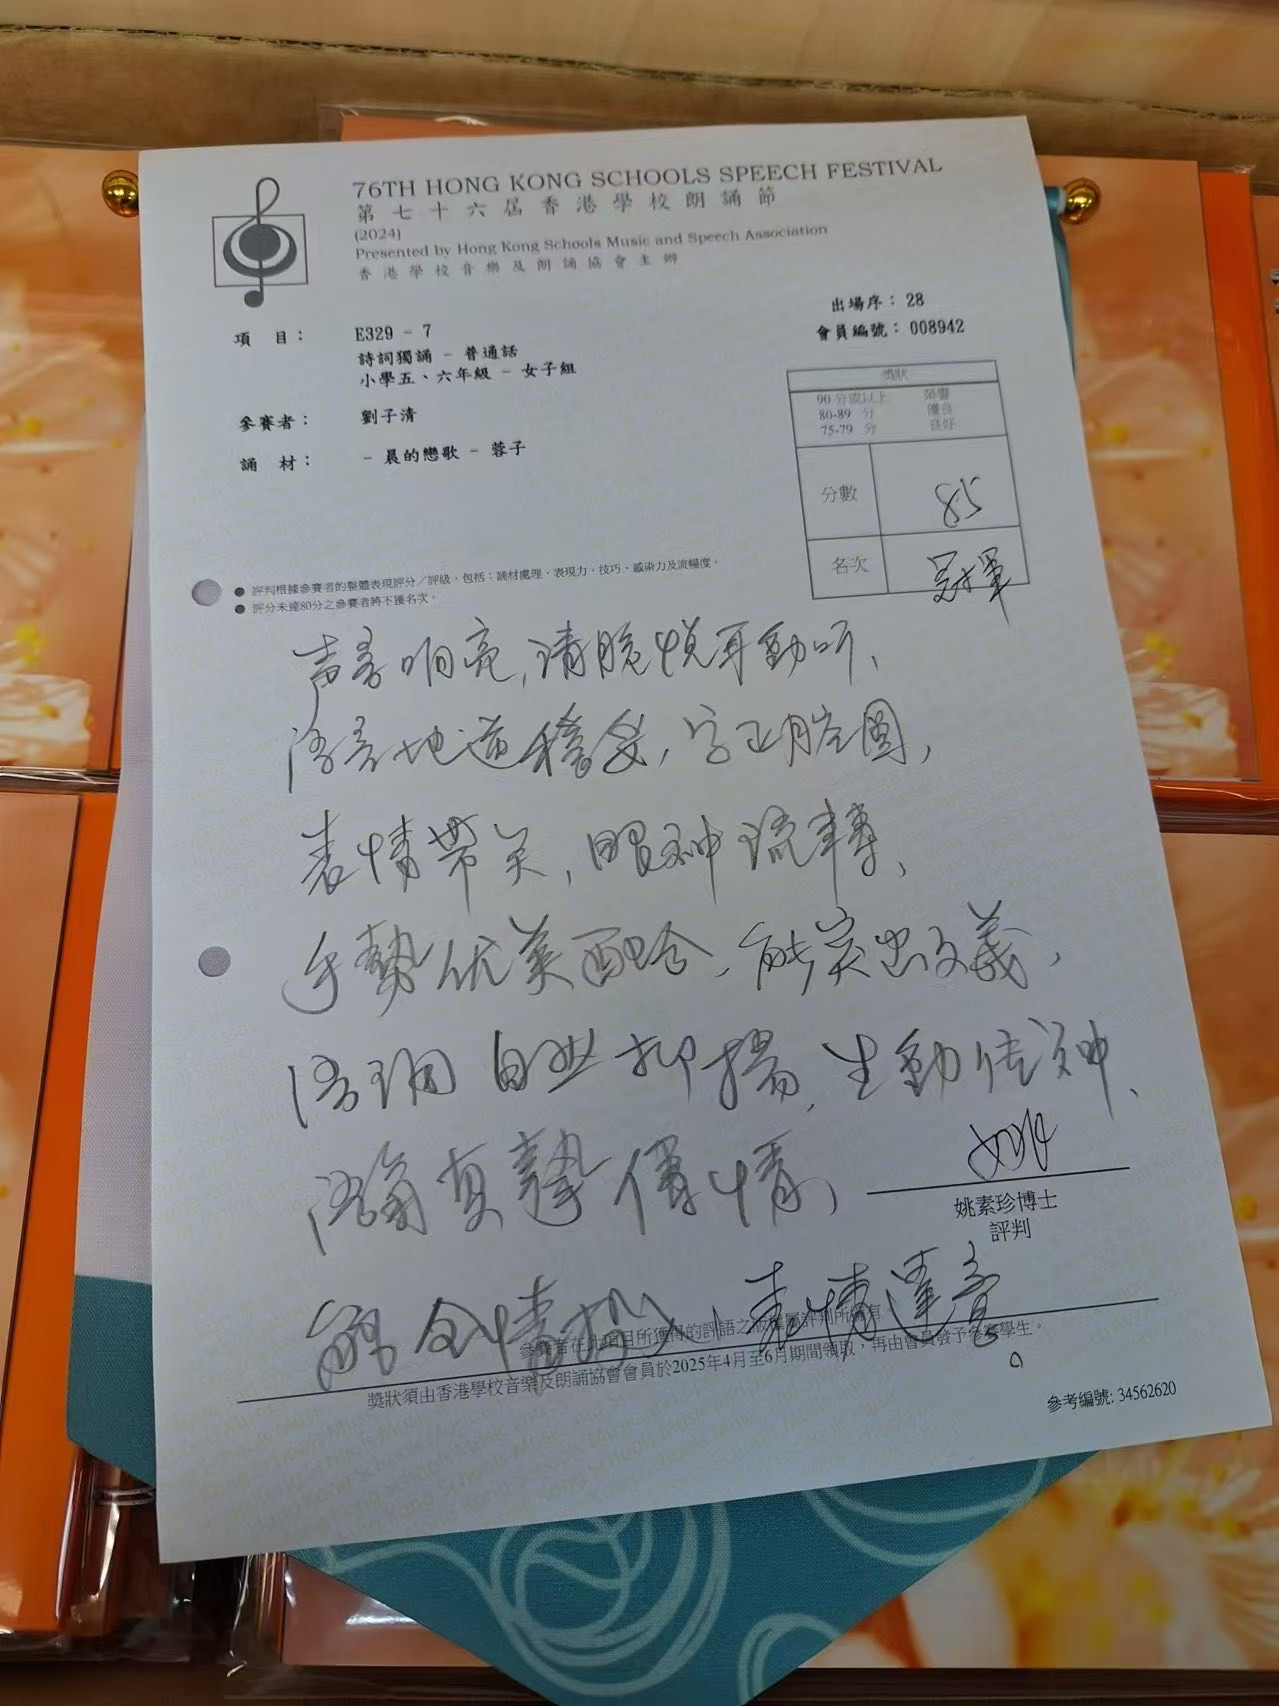 76TH HONG KONG SCHOOLS SPEECH FESTIVAL
第七十六屆香港學校朗誦節
(2024)
Presented by Hong Kong Schools Music and Speech Association
香港學校音樂及朗誦協會主辦
出場序： 28
會員編號： 008942
項 目： E329 - 7
詩詞獨誦 - 普通話
小學五、六年級 - 女子組
參賽者： 劉子清
誦 材： - 晨的戀歌 - 蓉子
獎狀
90 分或以上 榮譽
80-89 分 優良
75-79 分 良好
分數 85
名次 冠軍
● 評判根據參賽者的整體表現評分／評級，包括：誦材處理、表現力、技巧、感染力及流暢度。
● 評分未達80分之參賽者將不獲名次。
声音响亮,清脆悦耳動听、
语音地道穩妥,字正腔圆,
表情帶笑,眼神流轉、
手勢优美配合,能突出文義,
语调自然抑揚,生動传神、
语氣真摯傳情,
姚
姚素珍博士
評判
能全情投入,表情達意。
參賽者在此項目所獲得的評語之版權屬評判所擁有。
獎狀須由香港學校音樂及朗誦協會會員於2025年4月至6月期間領取，再由會員發予參賽學生。
參考編號: 34562620